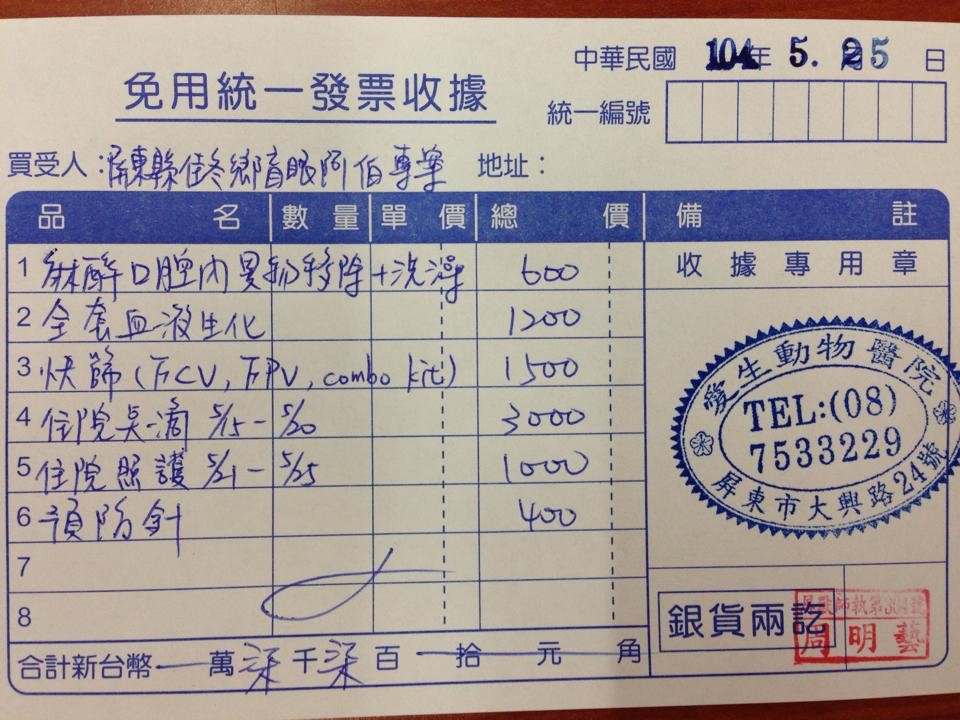 中華民國 104年 5. 25日
免用統一發票收據
統一編號
買受人：屏東縣佳冬鄉盲眼阿伯專案 地址：
品名 數量 單價 總價 備註
收據專用章
1 麻醉口腔內異物移除+洗澡 600
2 全套血液生化 1200
3 快篩(FCV, FPV, combo kit) 1500
4 住院點滴 5/15-5/20 3000
5 住院照護 5/21-5/25 1000
6 預防針 400
7
8
愛生動物醫院
TEL:(08)
7533229
屏東市大興路24號
銀貨兩訖
周明藝
合計新台幣 萬柒千柒百 拾 元 角